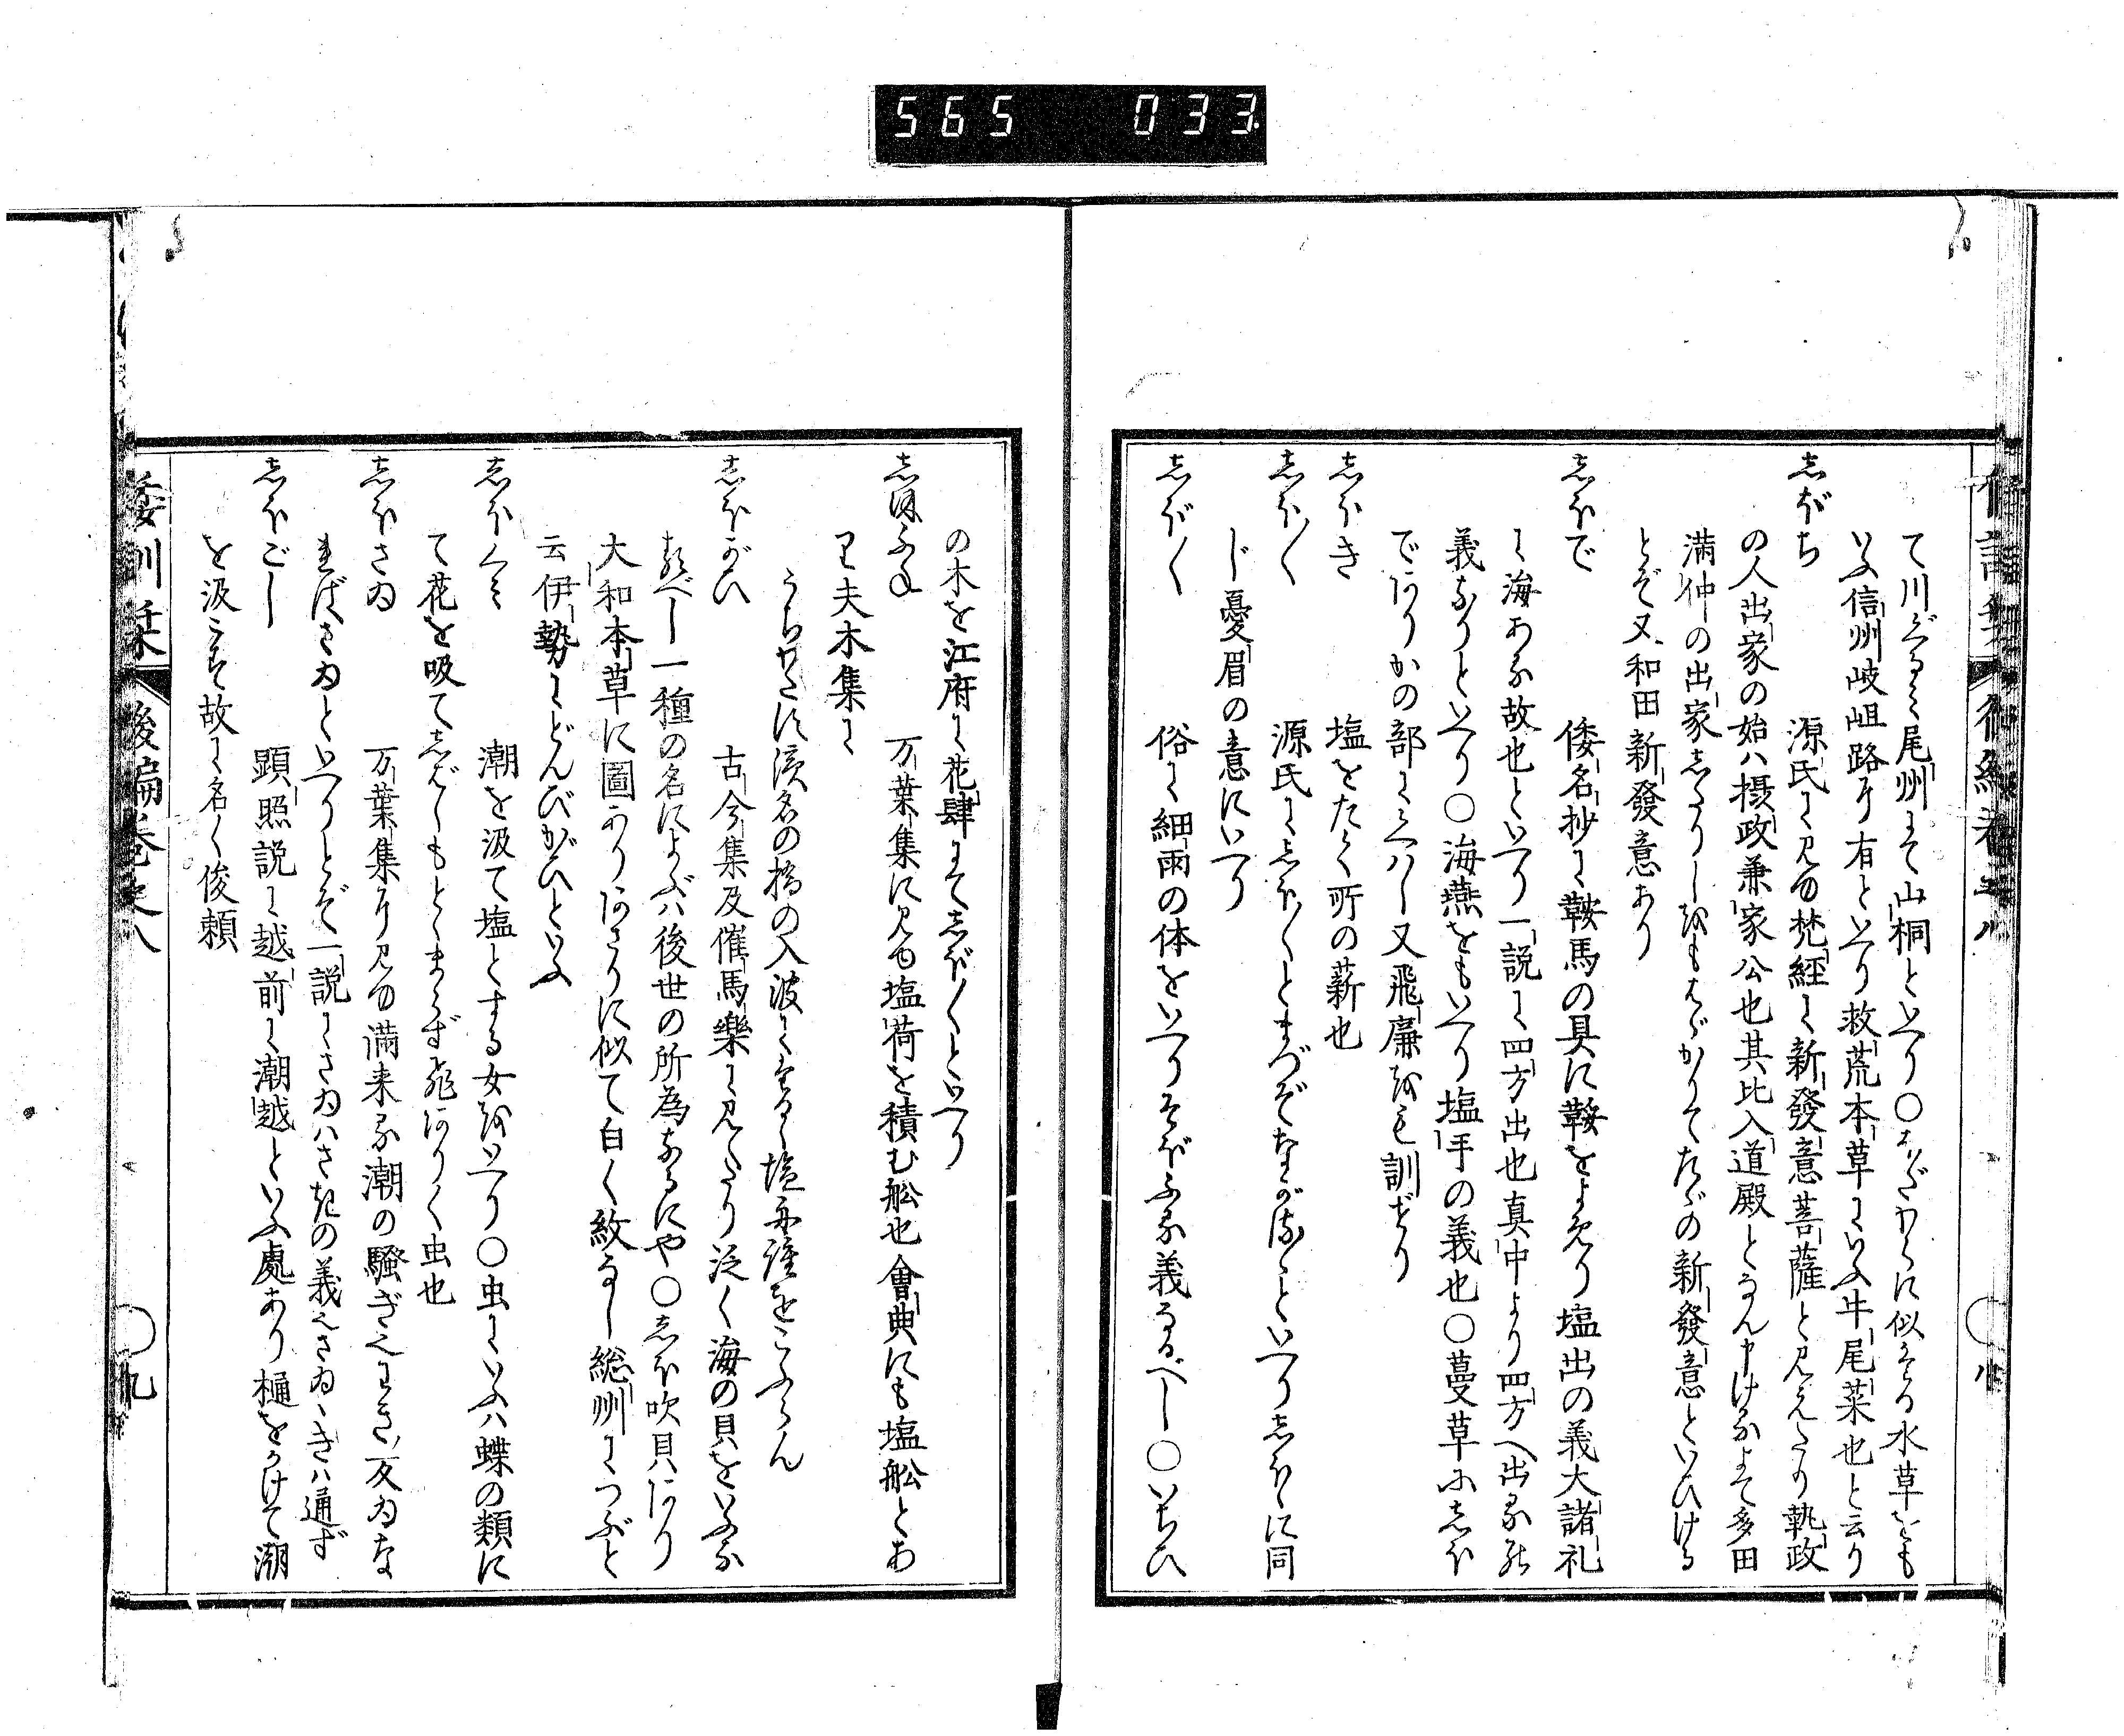 565 033
て川ぐるミ尾州にて山桐といへり〇あだわらに似たる水草をも
いふ信州岐岨路に有といへり救荒本草にいふ牛尾菜也と云り
志ぼち 源氏に見ゆ梵経に新發意菩薩と見えたり執政
の人出家の始ハ摂政兼家公也其比入道殿となん申ける よて多田
満仲の出家志たりしをもはゞかりてたゞの新發意といひける
とぞ又和田新發意あり
志ほで 倭名抄に鞍馬の具に鞍をよめり塩出の義大諸礼
に海ある故也といへり一説に四方出也真中より四方へ出る
義なりといへり〇海燕をもいへり塩手の義也〇蔓草に志ほ
でありかの部にくハし又飛廉をも訓ぜり
志ほき 塩をたく所の薪也
志ほ〱 源氏に志ほ〱とまづぞなかるゝといへり志ほゝに同
じ憂眉の意にいへり
志ぼ〱 俗に細雨の体をいへりそぼふる義なるべし〇いちひ
の木を江府に花肆にて志ぼ〱といへり
志ほふね 万葉集に見ゆ塩荷を積む舩也會典にも塩舩とあ
り夫木集に
うちわたす濱名の橋の入波に
志ほがひ 古今集及催馬樂に見えたり泛く海の貝をいふな
るべし一種の名によぶハ後世の所為なるにや〇志ほ吹貝あり
大和本草に圖ありあさりに似て白く紋なし総州につぶと
云伊勢にどんびがひといふ
志ほくミ 潮を汲て塩とする女をいへり〇虫にいふハ蝶の類に
て花を吸て志ばしもとゞまらず飛ありく虫也
志ほさゐ 万葉集に見ゆ満来る潮の騒ぎ也わき反ゐな
ればさゐといへりとぞ一説にさゐハさきの義也さゐ〻きハ通ず
志ほごし 顕照説に越前に潮越といふ處あり樋をかけて潮
を汲こす故に名く俊頼
倭訓栞 後編巻之八 〇九